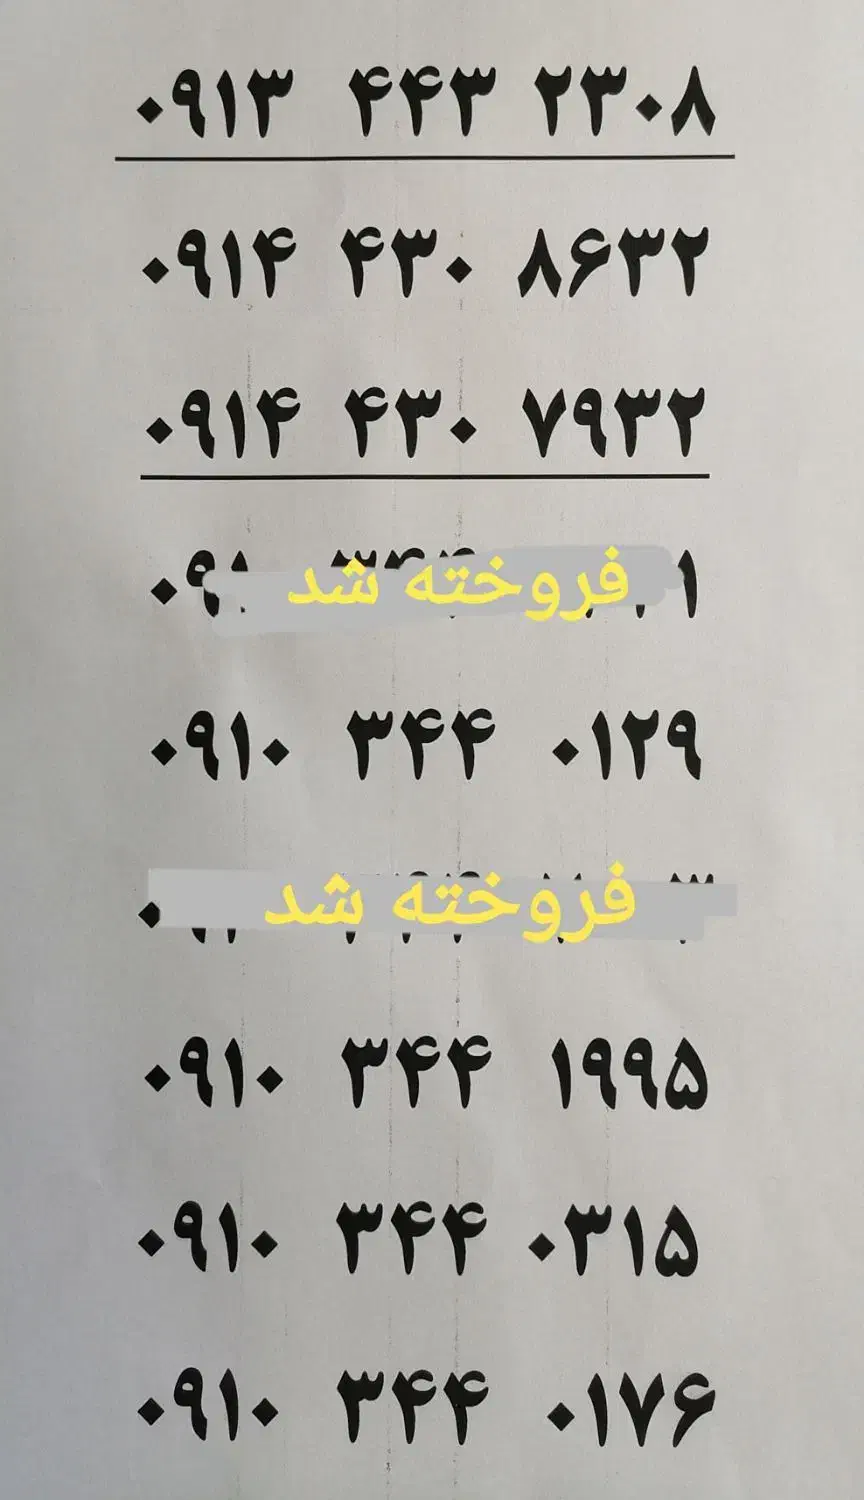 ۰۹۱۳ ۴۴۳ ۲۳۰۸
۰۹۱۴ ۴۳۰ ۸۶۳۲
۰۹۱۴ ۴۳۰ ۷۹۳۲
فروخته شد
۰۹۱۰ ۳۴۴ ۰۱۲۹
فروخته شد
۰۹۱۰ ۳۴۴ ۱۹۹۵
۰۹۱۰ ۳۴۴ ۰۳۱۵
۰۹۱۰ ۳۴۴ ۰۱۷۶